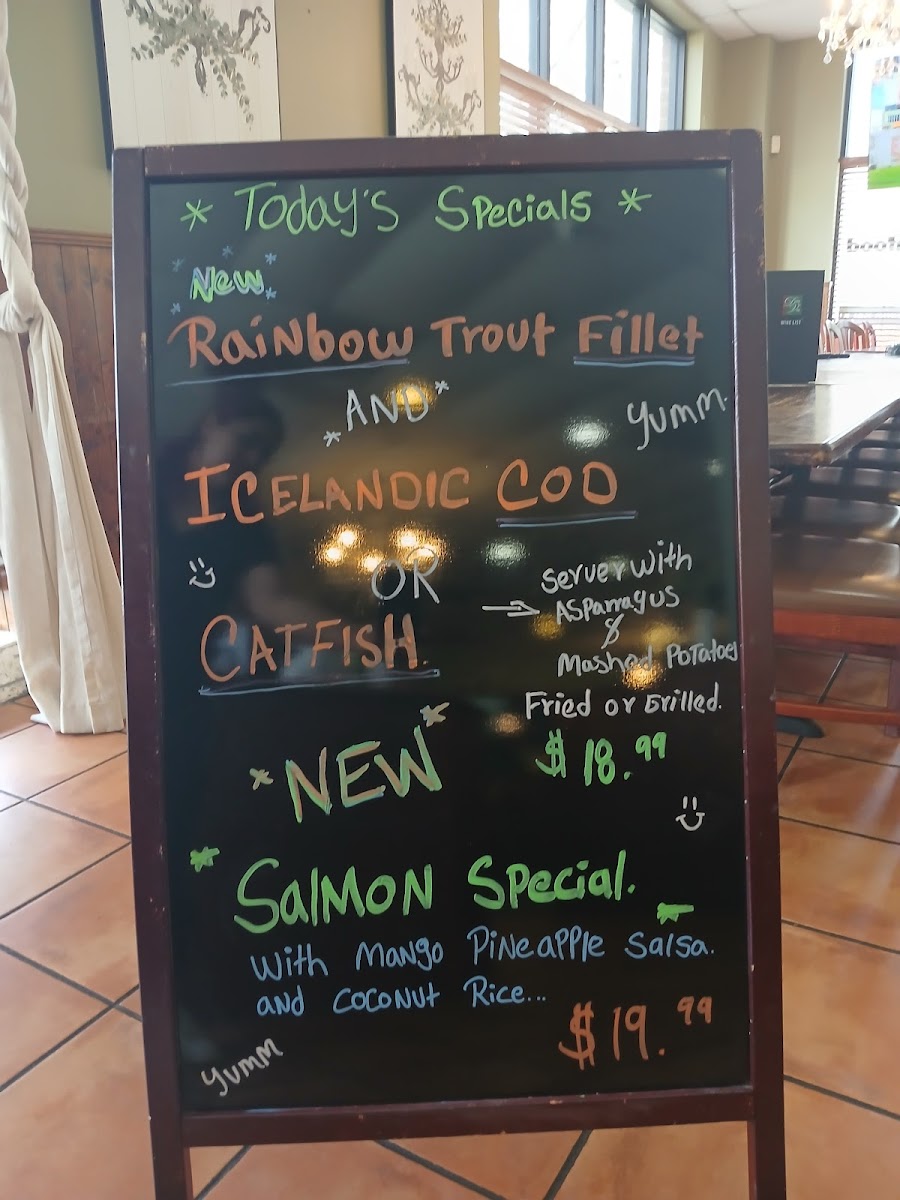 * Today's Specials *
New
Rainbow Trout Fillet
*AND*
Yumm.
ICELANDIC COD
OR
CATFISH.
Server with
Asparragus
&
Mashed Potatoes
Fried or Grilled.
$18.99
*NEW*
Salmon Special.
with Mango Pineapple Salsa.
and coconut Rice...
$19.99
Yumm
WINE LIST